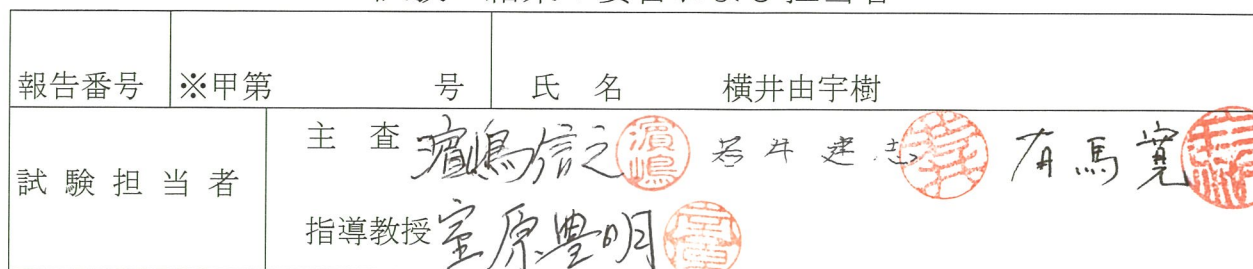 報告番号 ※甲第 号 氏 名 横井由宇樹
試験担当者 主 査 濵嶋信之 濵嶋 若井建志 有馬寛
指導教授 室原豊明 室原